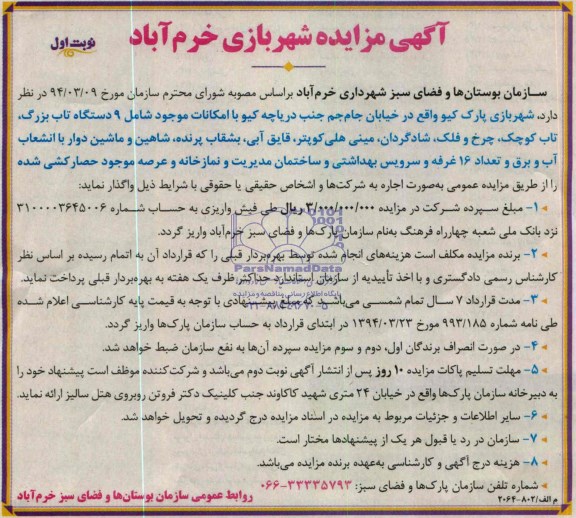 آگهی مزایده شهربازی خرم‌آباد
نوبت اول
سازمان بوستان‌ها و فضای سبز شهرداری خرم‌آباد براساس مصوبه شورای محترم سازمان مورخ ۹۴/۰۳/۰۹ در نظر
دارد، شهربازی پارک کیو واقع در خیابان جام‌جم جنب دریاچه کیو با امکانات موجود شامل ۹ دستگاه تاب بزرگ،
تاب کوچک، چرخ و فلک، شادگردان، مینی هلی‌کوپتر، قایق آبی، بشقاب پرنده، شاهین و ماشین دوار با انشعاب
آب و برق و تعداد ۱۶ غرفه و سرویس بهداشتی و ساختمان مدیریت و نمازخانه و عرصه موجود حصارکشی شده
را از طریق مزایده عمومی به‌صورت اجاره به شرکت‌ها و اشخاص حقیقی یا حقوقی با شرایط ذیل واگذار نماید:
۱- مبلغ سپرده شرکت در مزایده ۳/۰۰۰/۰۰۰/۰۰۰ ریال طی فیش واریزی به حساب شماره ۳۱۰۰۰۰۳۶۴۵۰۰۶
نزد بانک ملی شعبه چهارراه فرهنگ به‌نام سازمان پارک‌ها و فضای سبز خرم‌آباد واریز گردد.
۲- برنده مزایده مکلف است هزینه‌های انجام شده توسط بهره‌بردار قبلی را که قرارداد آن به اتمام رسیده بر اساس نظر
کارشناس رسمی دادگستری و با اخذ تأییدیه از سازمان استاندارد حداکثر ظرف یک هفته به بهره‌بردار قبلی پرداخت نماید.
۳- مدت قرارداد ۷ سال تمام شمسی می‌باشد که مبلغ پیشنهادی با توجه به قیمت پایه کارشناسی اعلام شده
طی نامه شماره ۹۹۳/۱۸۵ مورخ ۱۳۹۴/۰۳/۲۳ در ابتدای قرارداد به حساب سازمان پارک‌ها واریز گردد.
۴- در صورت انصراف برندگان اول، دوم و سوم مزایده سپرده آن‌ها به نفع سازمان ضبط خواهد شد.
۵- مهلت تسلیم پاکات مزایده ۱۰ روز پس از انتشار آگهی نوبت دوم می‌باشد و شرکت‌کننده موظف است پیشنهاد خود را
به دبیرخانه سازمان پارک‌ها واقع در خیابان ۲۴ متری شهید کاکاوند جنب کلینیک دکتر فروتن روبروی هتل سالیز ارائه نماید.
۶- سایر اطلاعات و جزئیات مربوط به مزایده در اسناد مزایده درج گردیده و تحویل خواهد شد.
۷- سازمان در رد یا قبول هر یک از پیشنهادها مختار است.
۸- هزینه درج آگهی و کارشناسی به‌عهده برنده مزایده می‌باشد.
شماره تلفن سازمان پارک‌ها و فضای سبز: ۳۳۳۳۵۷۹۳-۰۶۶
روابط عمومی سازمان بوستان‌ها و فضای سبز خرم‌آباد
م الف/۸۰۲-۲۰۶۴
ParsNamadData